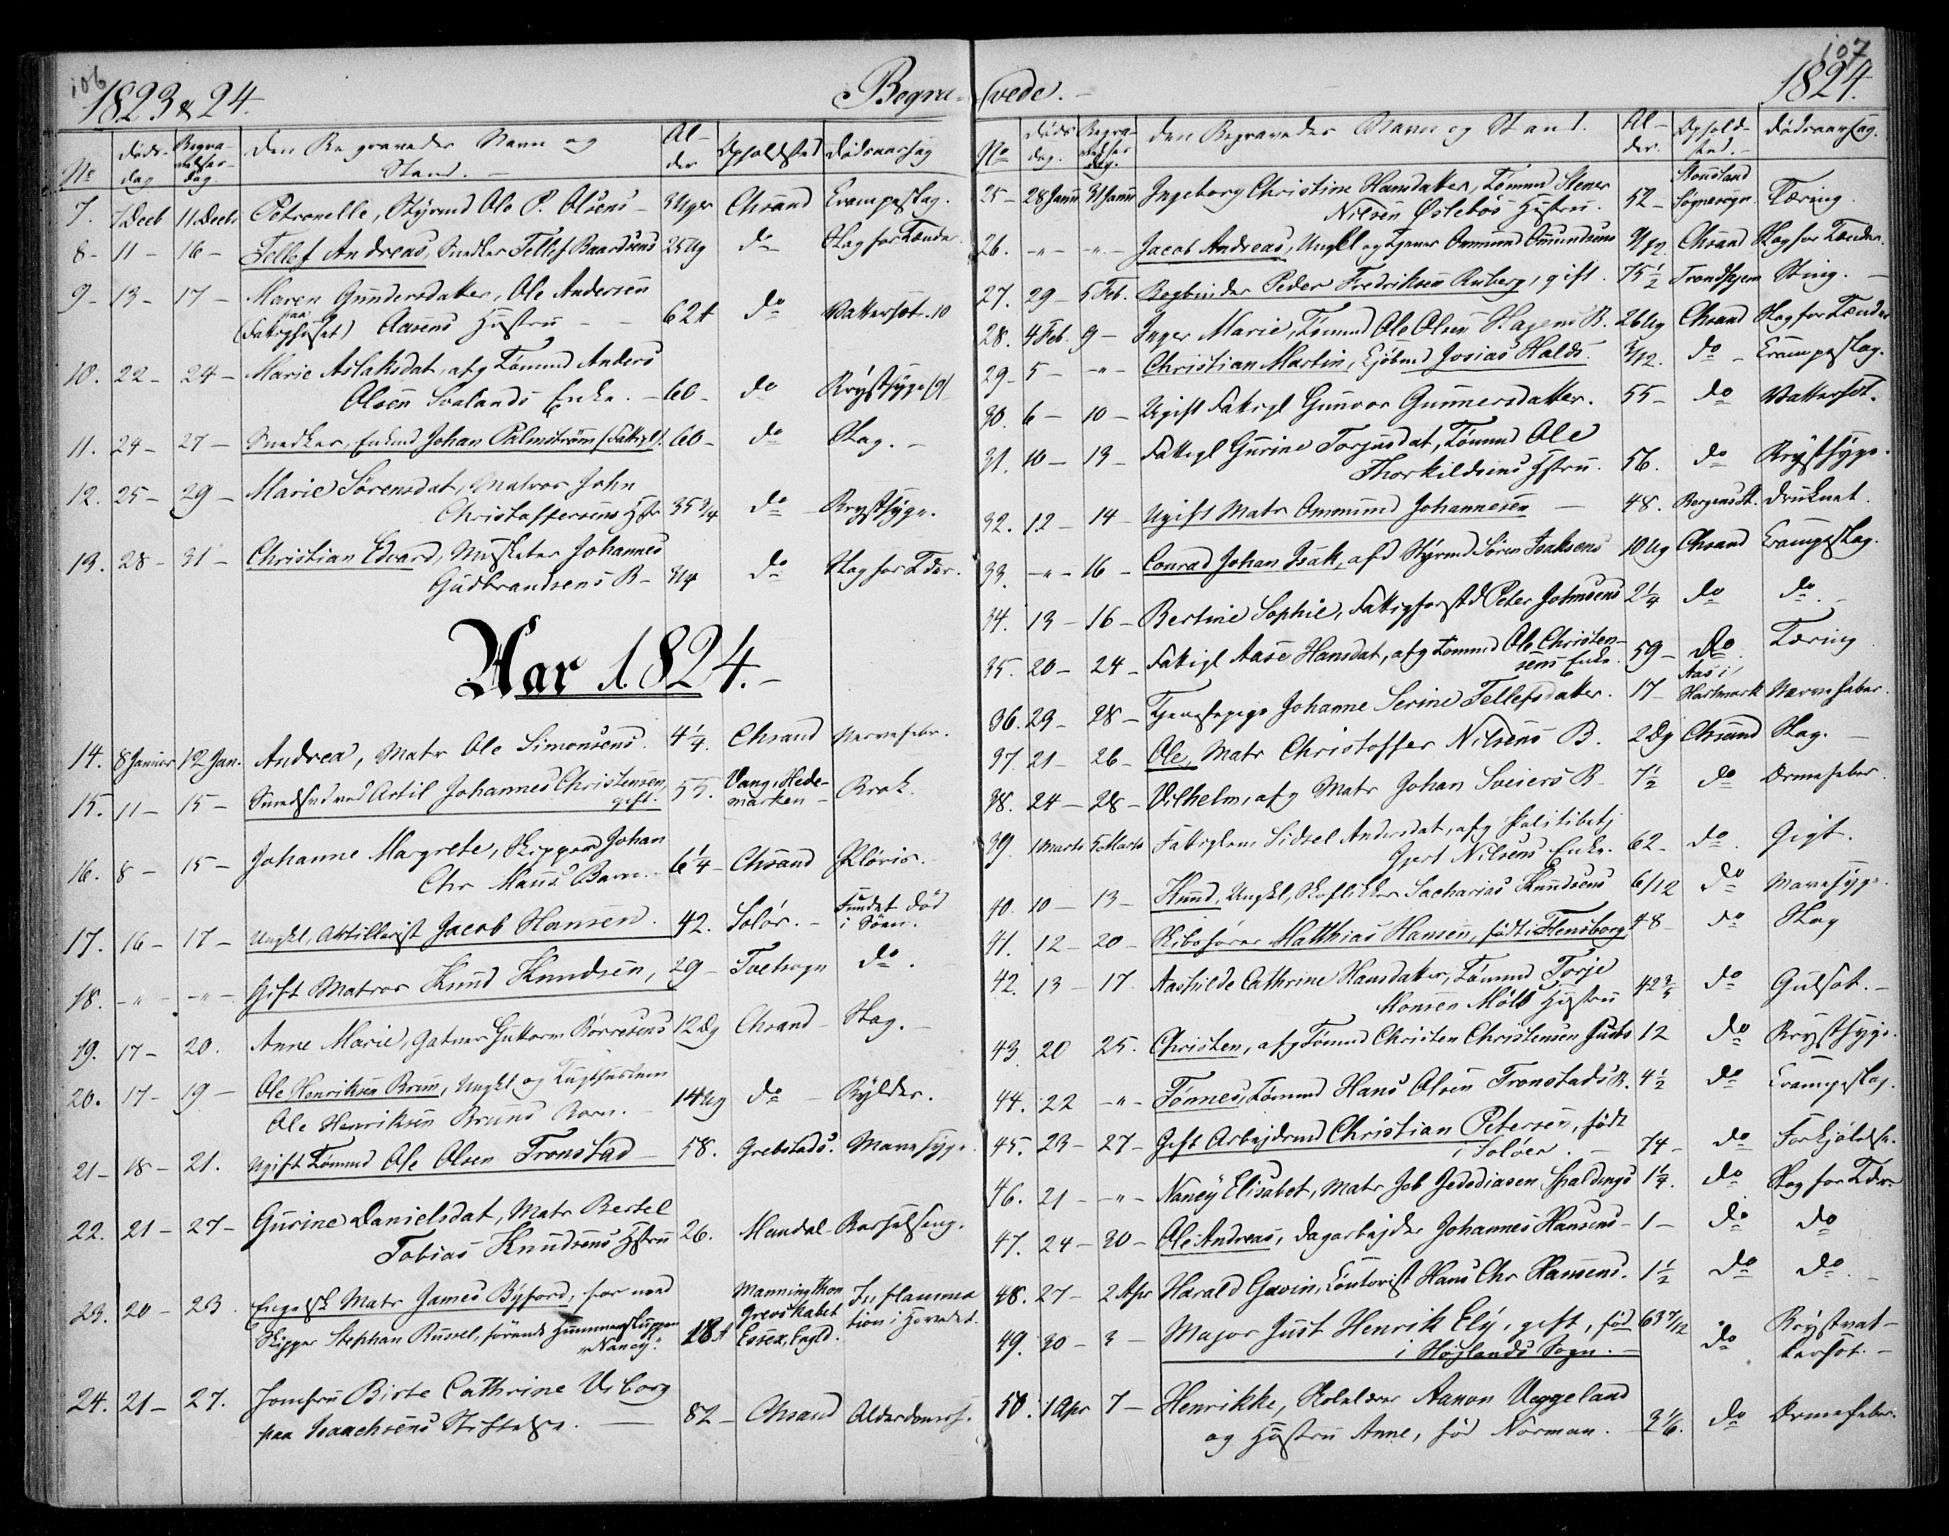 106
1823 & 24.
Begra-
No
Døds-
dag
Begra-
velses-
dag.
Den Begravedes Navn og
Stand. -
Al-
der
Opholdsted
Dødsaarsag
7. 7 Decb 11 Decbr Petronelle, Styrmd Ole P. Olsens - 3 Uger Chsand Krampeslag.
8 - 11 - 16 - Tellef Andreas, Snedker Tellef Baardsens 25 Ug do Slag for Tænder.
9 - 13 - 17 - Maren Gundersdatter, Ole Andersen
(paa Fattighuset) Aasens Hustru - - 62 A do Vattersot.
10. 22 - 24 - Marie Aslaksdat, afg Tømmd Anders
Olsen Svalands Enke. - 60 - do Brystsyge
11. 24 - 27 - Snedker, Enkmd Johan Palmstrøm (Fattigl). 60 - do Slag. -
12. 25 - 29 - Marie Sørensdat, Matros John
Christoffersens Hstr 35 3/4 do Brystsyge.
13. 28 - 31 - Christian Edvard, Musketer Johannes
Gudbrandsens B - 3/4 do Slag for Tder.
Aar 1824. -
14. 8 Januar 12 Jan. Andrea, Matr Ole Simonsens. 4 1/4. Chsand Nervefebr.
15. 11 - 15 - Johannes Christensen,
gift. 55. Vang, Hede-
marken - Brok.
16. 8 - 15 - Johanne Margrete, Skipper Johan
Chr Maus Barn. - 6 1/4 - Chsand
17. 16 - 17 - Ungkl, Artillerist Jacob Hansen. 42. Solør. - Fundet død
i Søen.
18. - " - - " - Gift Matros Knud Knudsen, 29 - Tvetsogn do.
19. 17 - 20. Anne Marie, Gutorm Børresens 12 Dg Chsand - Slag. -
20. 17 - 19 - Ole Henriksen Brun, Ungkl og Tugthuslem
Ole Henriksen Bruns Barn. - 14 Ug do - Bylder.
21 - 18 - 21. Ugift Tømmd Ole Olsen Tronstad - 58. Grebstads. Mavesyge.
22. 21 - 27 - Gurine Danielsdat, Matr Bertel
Tobias Knudsens Hstru 26. Mandal Barselseng.
23. 20 - 23. Engelsk Matr James Byford, for med
Skipper Stephan Russel, førende Hummerskuppen
"Nancy". 18 A Manningthon
Grevskabet
Essex, Engld. Inflamma
tion i Hovedet.
24. 21 - 27. Jomfru Birte Cathrine Viborg
paa Isaachsens Stiftelse. - 82 - Chsand Alderdomss.
107
vede. -
1824.
No
Døds
dag.
Begra-
velses
dag.
Den Begravedes Navn og Stand.
Al-
der.
Ophold-
sted. -
Dødsaarsag.
25 - 28 Janu 31 Janu Ingeborg Christine Hansdatter, Tømmd Stener
Nilsen Østebøs Hustru. 52 - Søgnesogn. Tæring.
26. - " - - " - Jacob Andreas, Ungkl og Tjener Ommund Omundsens 9/12 Chsand Slag for Tænder.
27. 29 - 5 Feb. Bogbinder Peder Fredriksen Ruberg, gift. 75 1/2 Trondhjem Sting. -
28. 4 Feb. 9 - Inger Marie, Tømmd Ole Olsen Hagens B. 26 Ug Chsand Slag for Tænder
29 - 5 - - " - Christian Martin, Kjøbmd Josias Halds. 3/12. do - Krampeslag.
30. 6 - 10 - Ugift Fattigl Gunvor Gunnersdatter. 55 - do Vattersot.
31. 10 - 13 - Fattigl Gurine Torjusdat, Tømmd Ole
Thorkildsens Hstru. 56. do Brystsyge.
32. 12 - 14 - Ugift Matr Ommund Johannesen - 48. Bergens St. Druknet.
33. - " - 16 - Conrad Johan Isak, afd Styrmd Søren Isaksens 10 Ug Chsand Krampeslag.
34. 13 - 16 - Bertine Sophie, Fattigforstd Peter Johnsens 2 1/4 do do. -
35. 20 - 24 - Fattigl Aase Hansdat, afg Tømmd Ole Christen-
sens Enke. 59 - do. Tæring
36. 23 - 28 - Tjenestepige Johanne Serine Tellefsdatter. 17 - Aas i
Hartmark Nervefeber.
37. 21 - 26 - Ole, Matr Christoffer Nilsens B. 2 Dg Chsand Slag. -
38. 24 - 28 - Vilhelm, afg Matr Johan Sveiers B - 7 1/2 do Ormefeber.
39. 1 Marts 5 Marts Fattiglem Sidsel Andersdat, afg Politibetj
Gjert Nilsens Enke. 62 - do. Gigt.
40. 10 - 13 - Knud, Ungkl, Skoflikker Sacharias Knudsens 6/12 do Mavesyge.
41. 12 - 20 - Skibsfører Matthias Hansen, født i Flensborg 48 - do Slag
42. 13 - 17. Aashilde Cathrine Hansdatter, Tømmd Torje
Monsen Møll Hustru 42 do Gulsot. -
43 20 25. Christen, afg Tømmd Christen Christensen Justs 12 do Brystsyge.
44. 22 - " - Tønnes, Tømmd Hans Olsen Tronstads B. 4 1/2 do Krampeslag.
45. 23 - 27 - Gift Arbejdsmd Christian Petersen, født
i Soløer. - 74 - do Forkjølelse.
46. 21 - - " - Nancy Elisabet, Matr Job Jedediasen Spaldings 1 1/4. do Slag for Tder
47. 24 - 30 - Ole Andreas, Dagarbejder Johannes Hansens - 1 - do do
48. 27 - 2 Apr Harald Gavin, Kontorist Hans Chr Hansens. 1 1/2 do do. -
49. 30 - 3 - Major Just Henrik Ely, gift, fød
i Højlands Sogn. - 63 7/12 do Brystvat-
tersot. -
50. 1 Apr 7 - Henrikke, Skolelærer Aanon Ueggeland
og Hustru Anne, fød Norman. 3 1/6. do Ormefeber.